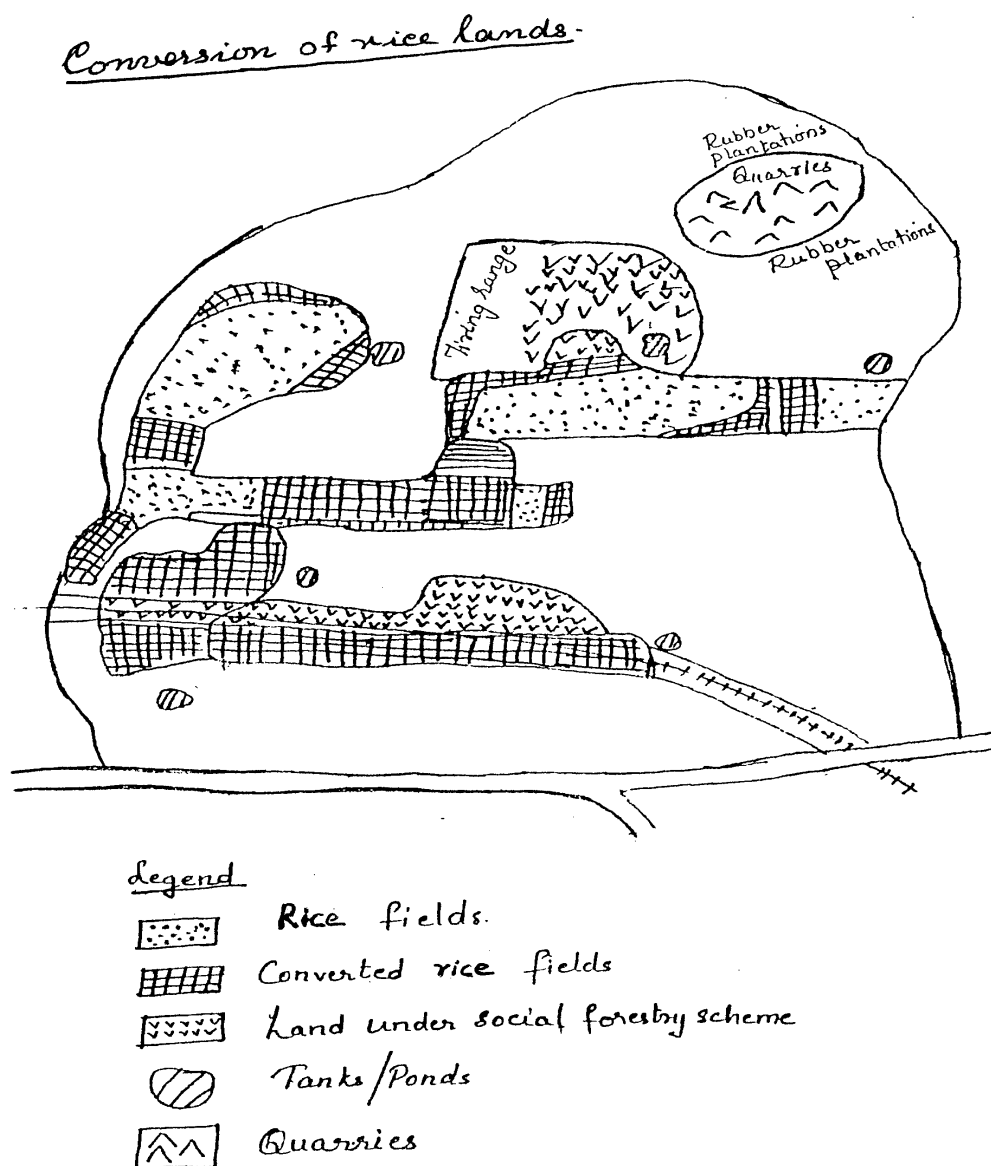 Conversion of rice lands.
Rubber
plantations
Quarries
Rubber
plantations
Firing range
Legend
Rice fields.
Converted rice fields
Land under social forestry scheme
Tanks/Ponds
Quarries